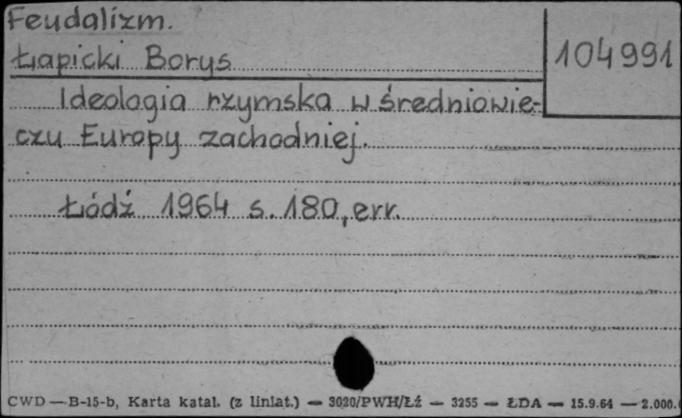 Feudalizm.
Łapicki Borys
104991
Ideologia rzymska w średniowie-
czu Europy zachodniej.
Łódź 1964 s. 180, err.
CWD — B-15-b, Karta katal. (z liniat.) — 3020/PWH/Łź — 3255 — ŁDA — 15.9.64 — 2.000.